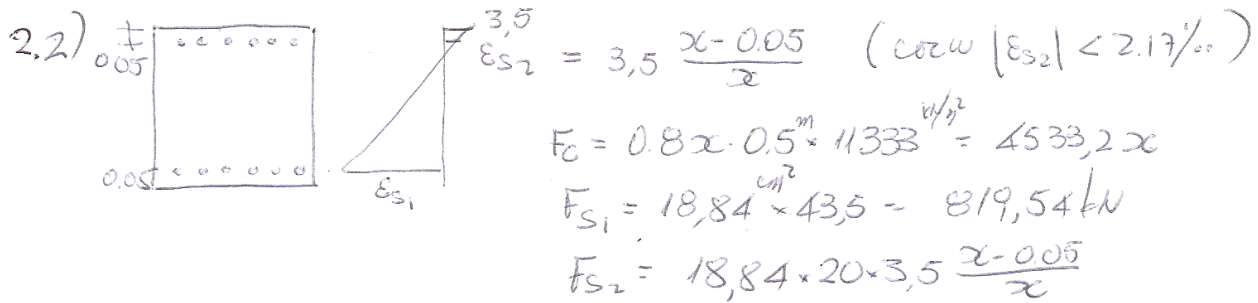 2.2) 0.05 3,5
εs2 = 3,5 (x - 0.05)/x (εσζω |εs2| < 2.17‰)
0.05 εs1
Fc = 0.8x · 0.5 m × 11333 kN/m² = 4533,2x
Fs1 = 18,84 cm² × 43,5 = 819,54 kN
Fs2 = 18,84 × 20 × 3,5 (x - 0.05)/x